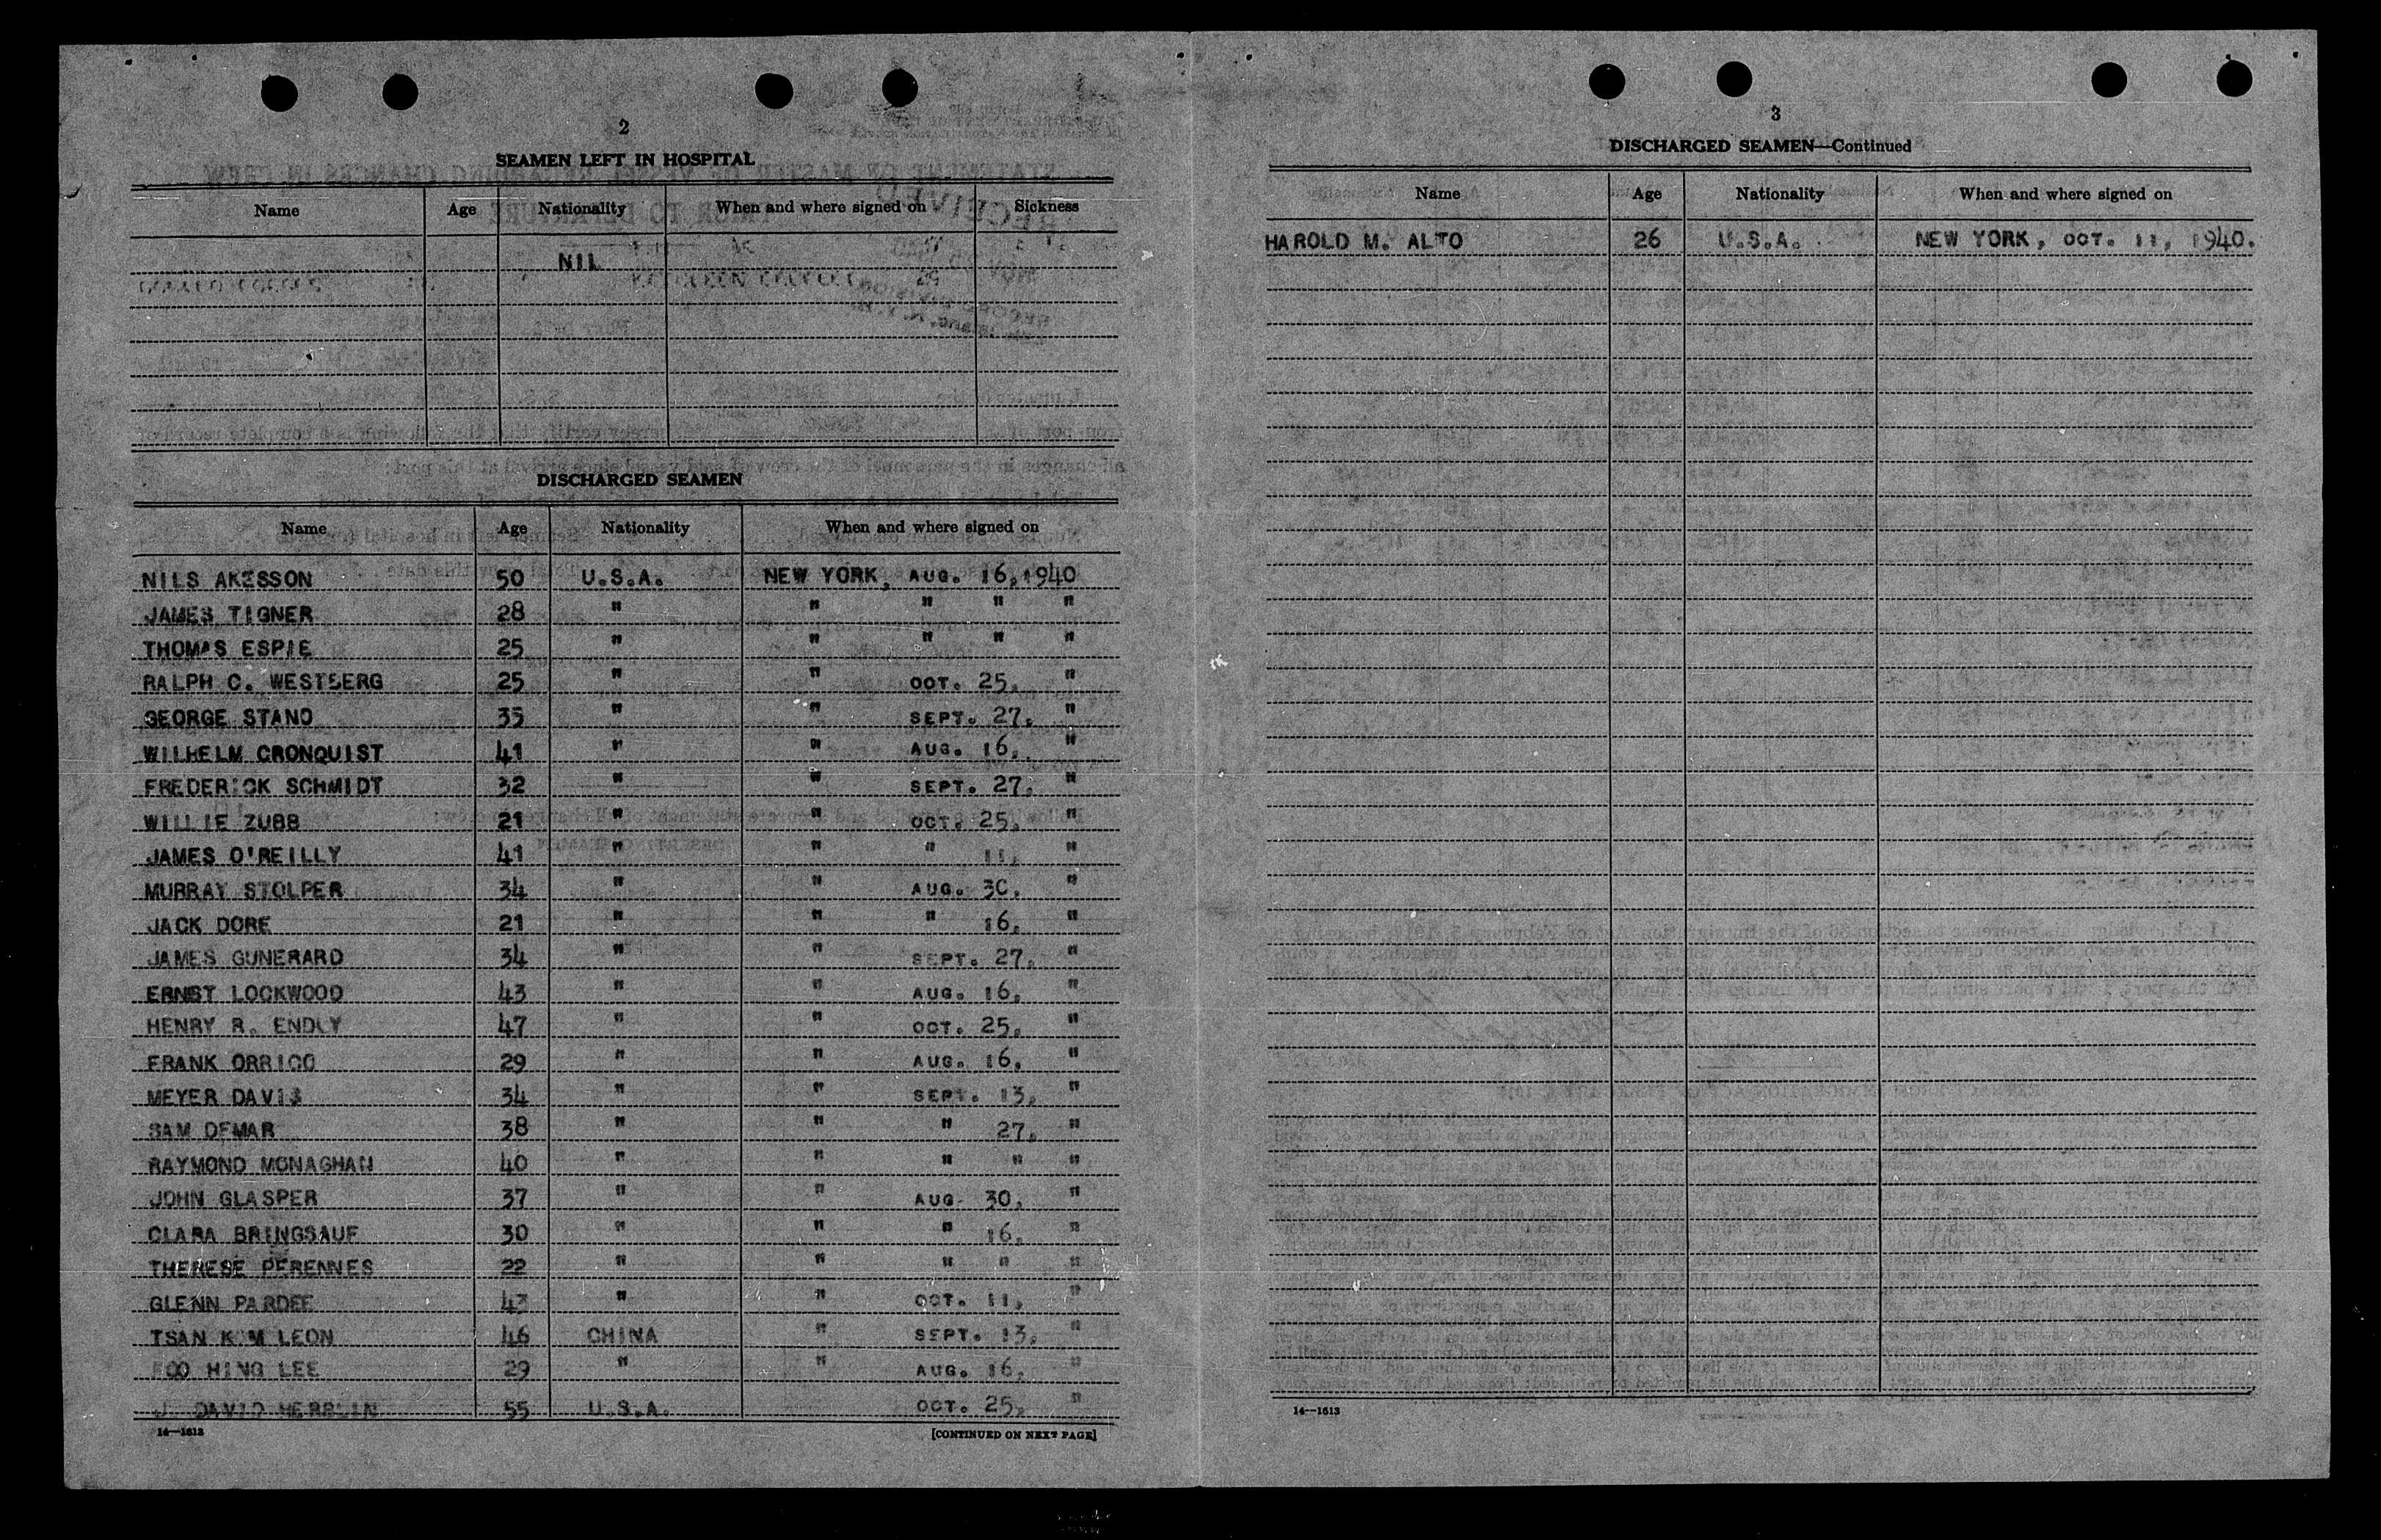 2
SEAMEN LEFT IN HOSPITAL
Name Age Nationality When and where signed on Sickness
NIL
DISCHARGED SEAMEN
Name Age Nationality When and where signed on
NILS AKESSON 50 U.S.A. NEW YORK, AUG. 16, 1940
JAMES TIGNER 28 " " " " "
THOMAS ESPIE 25 " " " " "
RALPH C. WESTBERG 25 " " OCT. 25, "
GEORGE STANO 35 " " SEPT. 27, "
WILHELM CRONQUIST 41 " " AUG. 16, "
FREDERICK SCHMIDT 32 " " SEPT. 27, "
WILLIE ZUBB 21 " " OCT. 25, "
JAMES O'REILLY 41 " " " 11, "
MURRAY STOLPER 34 " " AUG. 30, "
JACK DORE 21 " " " 16, "
JAMES GUNERARD 34 " " SEPT. 27, "
ERNST LOCKWOOD 43 " " AUG. 16, "
HENRY R. ENDLY 47 " " OCT. 25, "
FRANK ORRICO 29 " " AUG. 16, "
MEYER DAVIS 34 " " SEPT. 13, "
SAM DEMAR 38 " " " 27, "
RAYMOND MONAGHAN 40 " " " " "
JOHN GLASPER 37 " " AUG. 30, "
CLARA BRINGSAUF 30 " " " 16, "
THERESE PERENNES 22 " " " " "
GLENN PARDEE 43 " " OCT. 11, "
TSAN KIM LEON 46 CHINA " SEPT. 13, "
HING LEE 29 " " AUG. 16, "
J. DAVID HERBLIN 55 U.S.A. OCT. 25, "
14—1613 [CONTINUED ON NEXT PAGE]
3
DISCHARGED SEAMEN—Continued
Name Age Nationality When and where signed on
HAROLD M. ALTO 26 U.S.A. NEW YORK, OCT. 11, 1940.
14—1613